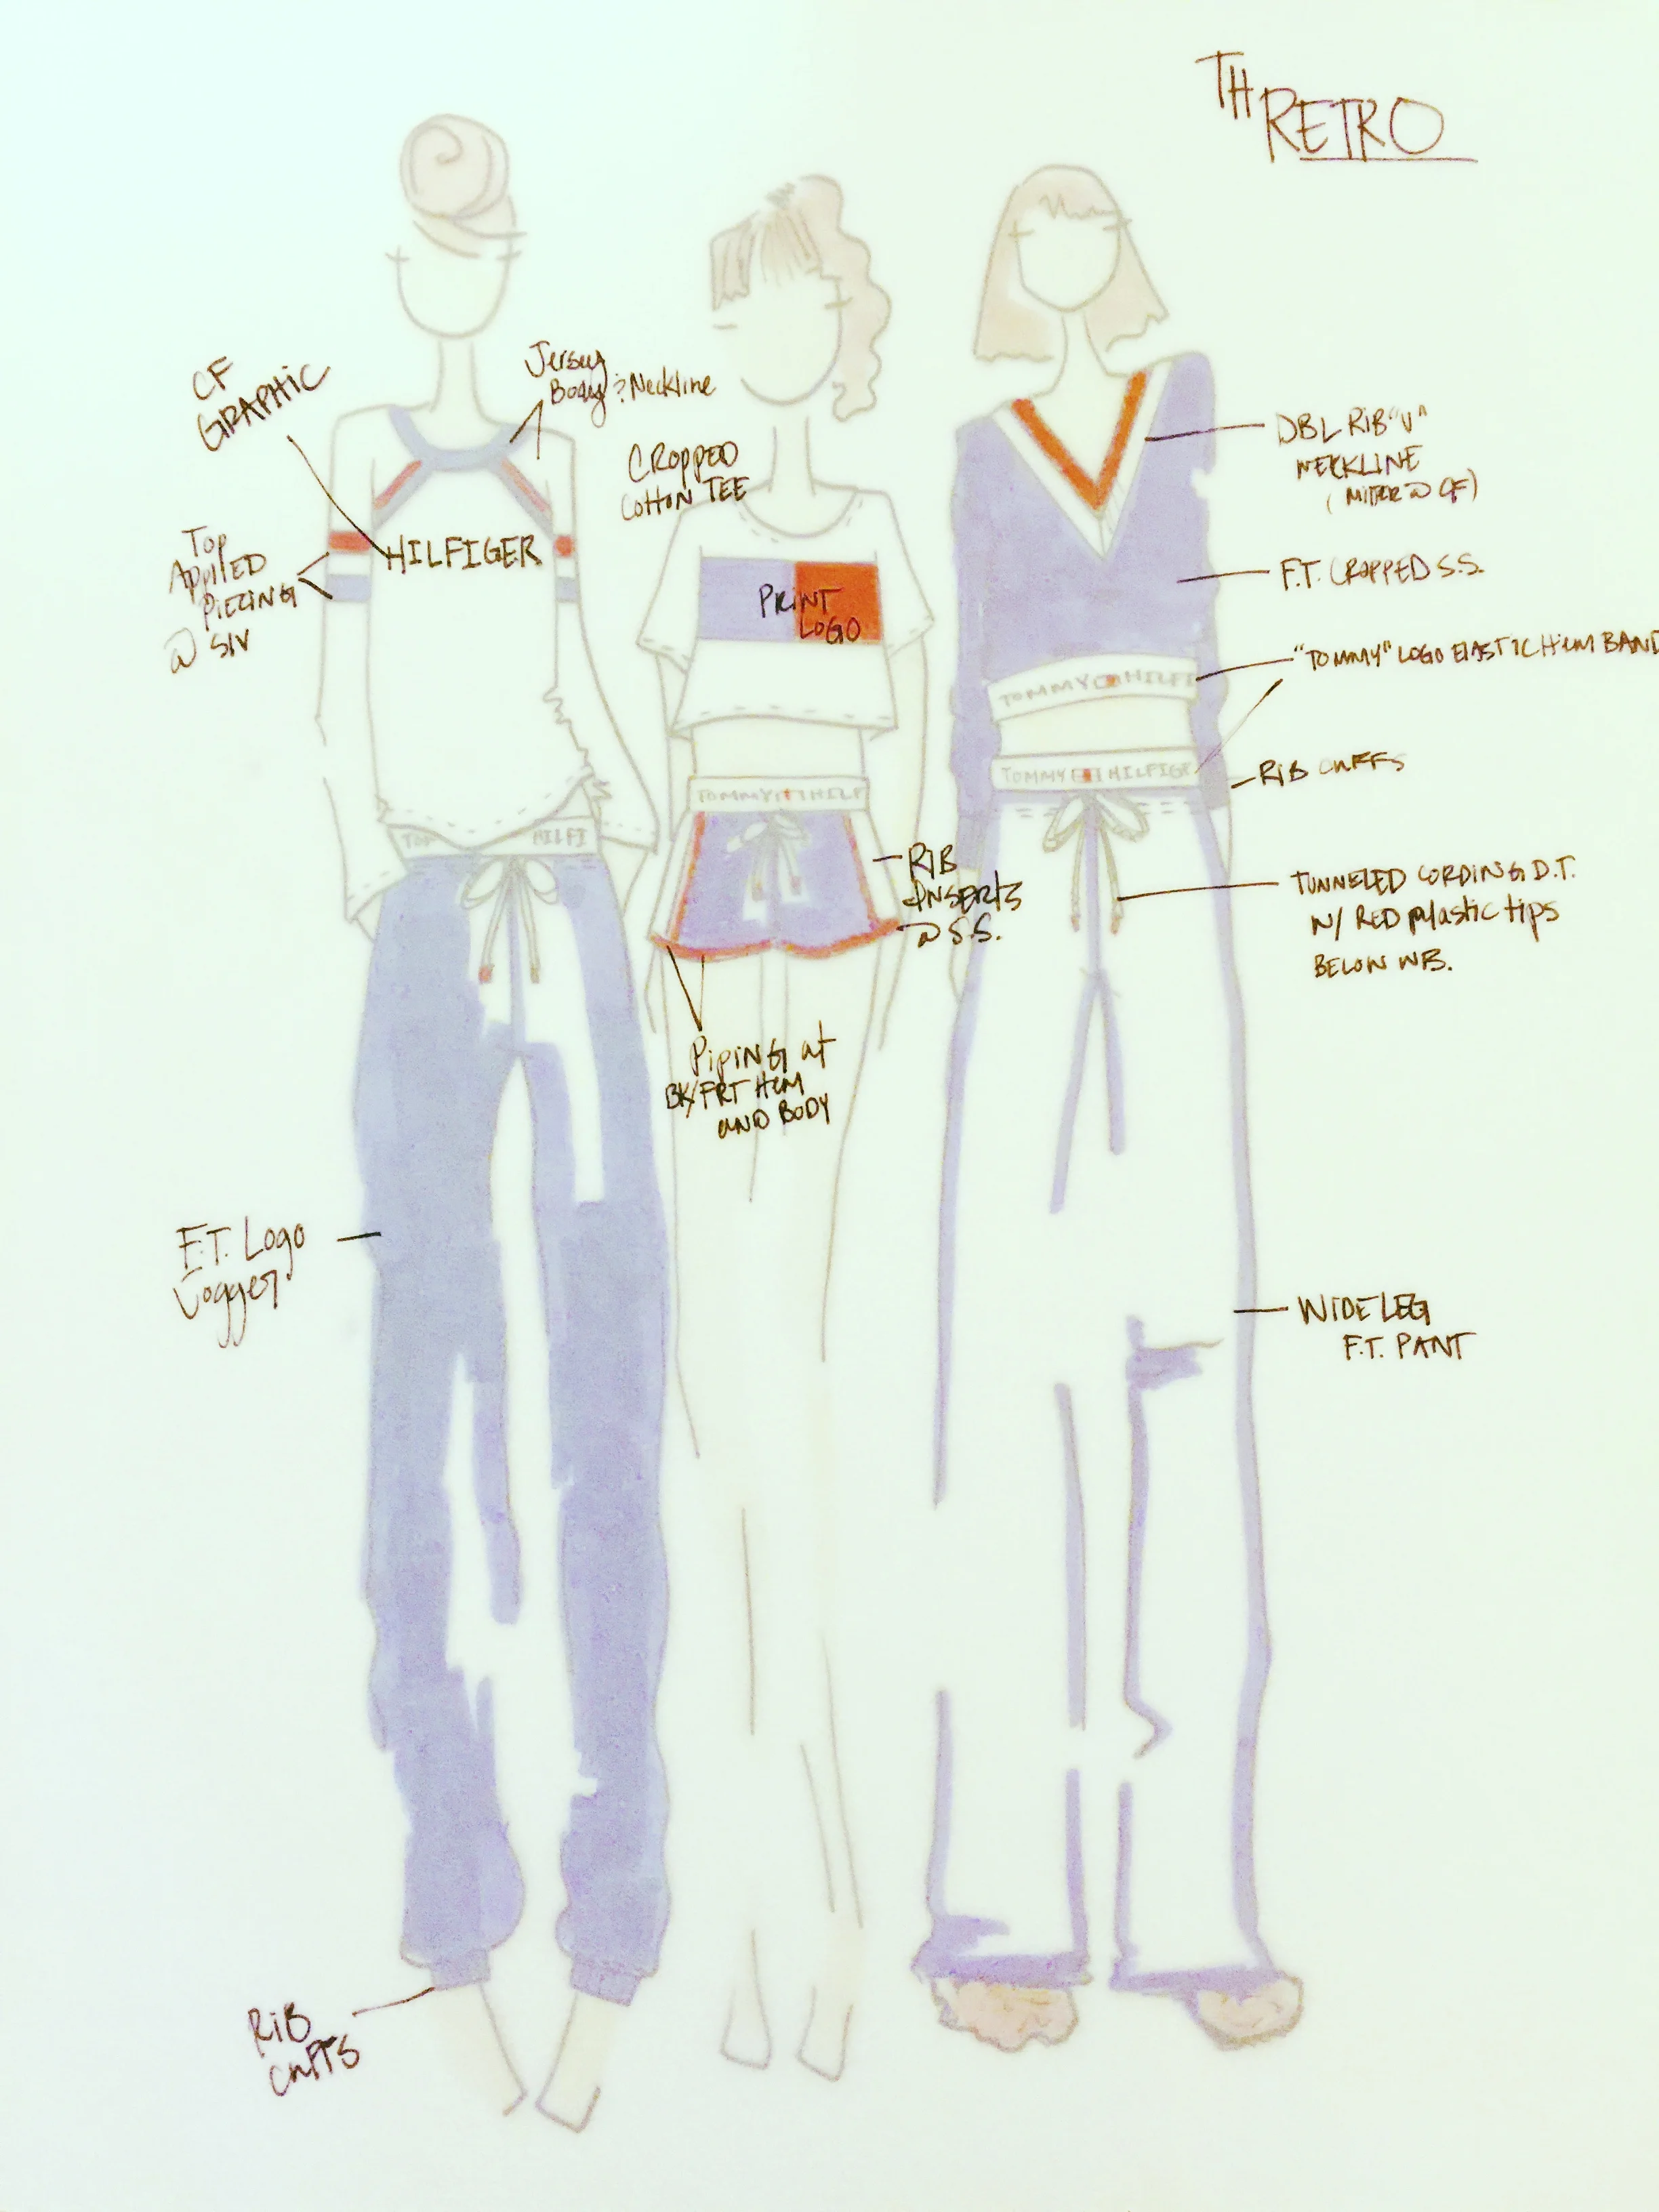 TH
RETRO
CF
GRAPHIC
Jersey
Body & Neckline
TOP
APPLIED
PIECING
@ SLV
HILFIGER
TOM HILFI
F.T. Logo
Jogger
RIB
CUFFS
CROPPED
COTTON TEE
PRINT
LOGO
TOMMY HILF
RIB
INSERTS
@ S.S.
PIPING at
BK/FRT HEM
AND BODY
DBL RIB "V"
NECKLINE
(MITER @ CF)
F.T. CROPPED S.S.
"TOMMY" LOGO ELASTIC HEM BAND
TOMMY HILFI
TOMMY HILFIGE
RIB CUFFS
TUNNELED CORDING D.T.
W/ RED plastic tips
BELOW WB.
WIDE LEG
F.T. PANT